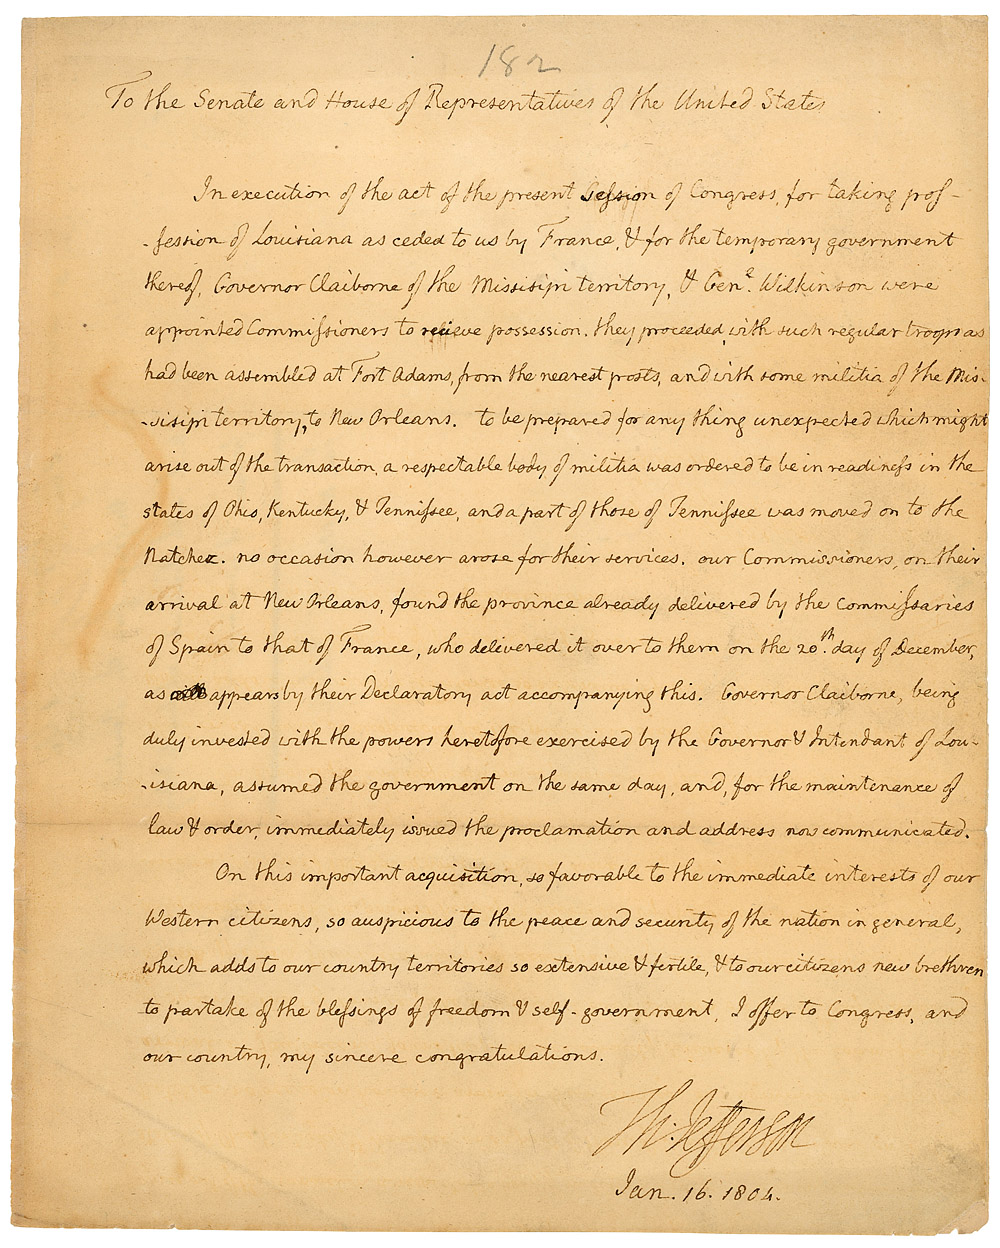 182
To the Senate and House of Representatives of the United States
In execution of the act of the present Session of Congress, for taking pos-
-session of Louisiana as ceded to us by France, & for the temporary government
thereof, Governor Claiborne of the Missisipi territory, & Genl. Wilkinson were
appointed Commissioners to recieve possession. they proceeded, with such regular troops as
had been assembled at Fort Adams, from the nearest posts, and with some militia of the Mis-
-sisipi territory, to New Orleans. to be prepared for any thing unexpected which might
arise out of the transaction, a respectable body of militia was ordered to be in readiness in the
states of Ohio, Kentucky, & Tennissee, and a part of those of Tennissee was moved on to the
Natchez. no occasion however arose for their services. our Commissioners, on their
arrival at New Orleans, found the province already delivered by the Commissaries
of Spain to that of France, who delivered it over to them on the 20th. day of December,
as appears by their Declaratory act accompanying this. Governor Claiborne, being
duly invested with the powers heretofore exercised by the Governor & Intendant of Lou-
-isiana, assumed the government on the same day, and, for the maintenance of
law & order, immediately issued the proclamation and address now communicated.
On this important acquisition, so favorable to the immediate interests of our
Western citizens, so auspicious to the peace and security of the nation in general,
which adds to our country territories so extensive & fertile, & to our citizens new brethren
to partake of the blessings of freedom & self-government, I offer to Congress, and
our country, my sincere congratulations.
Th: Jefferson
Jan. 16. 1804.